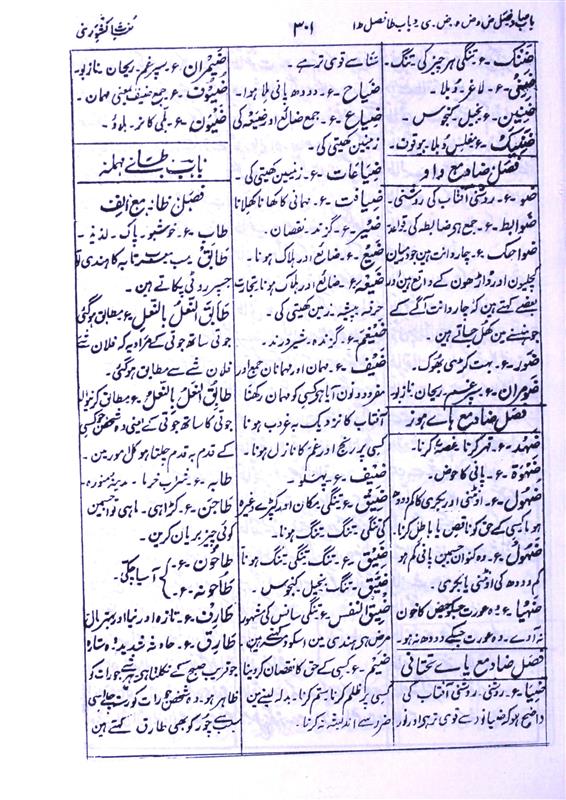 باب صاد و فصل ض و ض ہ ض ی و باب طا فصل ط ا
۳۰۱
لغات کشوری
ضَنک - ع - تنگی ہر چیز کی تنگ -
ضَنِی - ع - لاغر - دُبلا -
ضَنِین - ع - بخیل - کنجوس -
ضَنِیک - ع - مفلس دُبلا بیوقوف -
فصل ضاد مع واو
ضَو - ع - روشنی آفتاب کی روشنی -
ضَوَابِط - ع - جمع ہو ضابطہ کی قواعد
ضواحک - ع - چار دانت ہین جو میان
کچلیون اور داڑھون کے واقع ہین اور
بعضے کہتے ہین کہ چار دانت آگے کے
جو ہنسنے مین کھل جاتے ہین -
ضَوَر - ع - بہت گرمئی بھوک -
ضَومِران - ع - سپرغم - ریحان نازبو
فصل ضاد مع ہاے ہوز
ضَہد - ع - قہر کرنا غصّہ کرنا -
ضَہوَۃ - ع - پانی کا حوض -
ضَہُول - ع - اونٹنی اور بکری کا کم دودھ
ہونا کسی کے حق کو ناقص یا باطل کرنا -
ضَہُول - ع - وہ کنوان جسمین پانی کم ہو
کم دودھ کی اونٹنی یا بکری -
ضَہیَا - ع - وہ عورت جسکو حیض کا خون
نہ آوے - وہ عورت جسکے دودھ نہ ہو -
فصل ضاد مع یاے تحتانی
ضِیَا - ع - روشنی - روشنی آفتاب کی
واضح ہو کہ ضیا نور سے قوی تر ہو اور نور
سنا سے قوی تر ہے -
ضَیَاح - ع - دودھ پانی ملا ہوا -
ضِیَاع - ع - جمع ضائع اور ضیعۃ کی
زمینین کھیتی کی -
ضِیَاعَات - ع - زمینین کھیتی کی -
ضِیَافت - ع - مہمانی کا کھانا کھلانا
ضَیر - ع - گزند - نقصان -
ضَیع - ع - ضائع اور ہلاک ہونا -
ضَیعَہ - ع - ضائع اور ہلاک ہونا تجارت
حرفہ پیشہ - زمین کھیتی کی -
ضَیغَم - ع - گزندہ - شیر درندہ -
ضَیف - ع - مہمان اور مہمانان جمع اور
مفرد دونون آیا ہو کسی کو مہمان رکھنا
آفتاب کا نزدیک بہ غروب ہونا
کسی پر رنج اور غم کا نازل ہونا -
ضِیف - ع - پہلو -
ضِیق - ع - تنگی مکان اور کپڑے وغیرہ
کی تنگی - تنگ ہونا -
ضَیق - ع - تنگ تنگی تنگ ہونا
ضَیِّق - ع - تنگ بخیل - کنجوس -
ضِیق النفس - ع - تنگی سانس کی مشہور
مرض ہی ہندی مین اسکو دمہ کہتے ہین -
ضَیم - ع - کسی کے حق کا نقصان کر دینا
کسی پر ظلم کرنا - ستم کرنا - بدلہ لینے مین
ضرر سے اندیشہ نہ کرنا -
ضَیمُران - ع - سپرغم - ریحان نازبو
ضُیُوف - ع - جمع ضیف بمعنی مہمان -
ضَیوَن - ع - بلّی کا نر - بلاؤ -
باب طاے مہملہ
فصل طا مع الف
طاب - ع - خوشبو - پاک - لذیذ -
طَابَق - ع - معرب تابہ کا ہندی توا
جسپر روٹی پکاتے ہین -
طَابَقَ النّعلُ بِالنّعلِ - ع - مطابق ہوگئی
جوتی ساتھ جوتی کے مراد یہ کہ فلان شے
فلان شے سے مطابق ہوگئی -
طَابِق النّعل بِالنّعل - ع - مطابق کرنیوالا
جوتی کا ساتھ جوتی کے یعنی وہ شخص جو کسی
کے قدم بہ قدم چلتا ہو کل امور مین -
طابہ - ع - شراب خرما - مدینہ منورہ -
طاجَن - ع - کڑاہی - ماہی توا جسمین
کوئی چیز بریان کرین -
طاحُون - ع -
طاحُونہ - ع - آسیا چکی -
طارِف - ع - تازہ اور نیا اور ستر مال
طارِق - ع - حادثہ شدید - وہ ستارہ
جو قریب صبح کے نکلتا ہی ہر شے جو رات کو
ظاہر ہو - وہ شخص جو رات کو آے اسی
سبب چور کو بھی طارق کہتے ہین